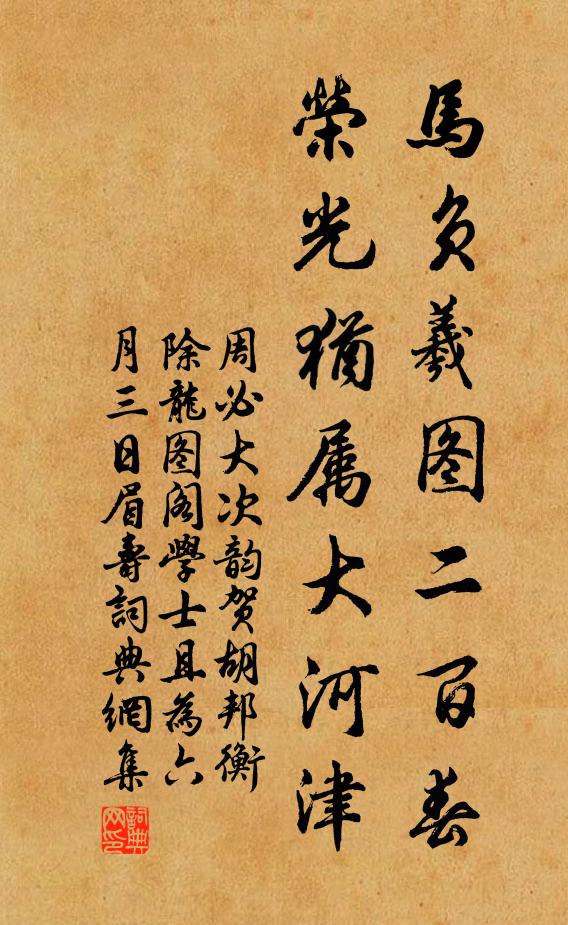 馬负羲图二百春
榮光猶属大河津
周必大次韵贺胡邦衡
除龍图阁學士且為六
月三日眉壽詞典網集
詞典網印